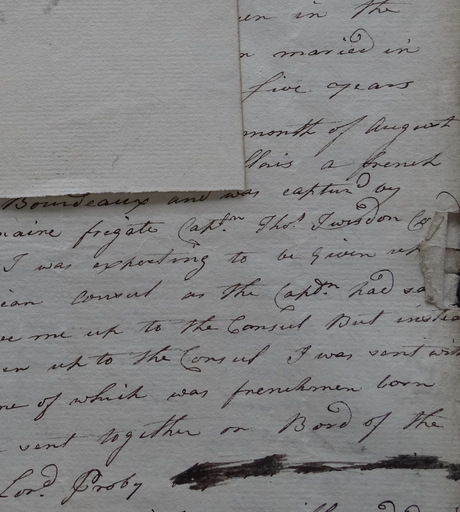 in the
maried in
five years
month of August
a french
Bourdeaux and was capturd by
frigate Captn Thos Twisdon
I was expecting to be Given up
consul as the Captn had
me up to the Consul But
up to the Consul I was sent with
of which was frenchmen born
sent together on Bord of the
Lord Proby